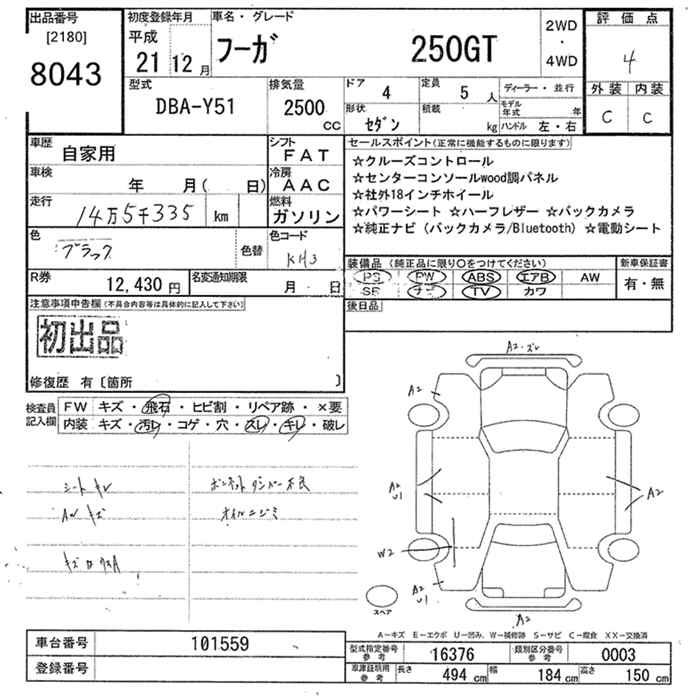 出品番号
[2180]
8043
初度登録年月
平成
21 12 月
車名・グレード
フーガ 250GT
2WD
・
4WD
評価点
4
外装 内装
C C
型式
DBA-Y51
排気量
2500 CC
ドア 4
定員 5 人
形状 セダン
積載 kg
ディーラー・並行
モデル年式 年
ハンドル 左・右
車歴
自家用
シフト
FAT
車検
年 月( 日)
冷房
AAC
走行
14万5千335 km
燃料
ガソリン
色
ブラック
色替
色コード
KH3
R券 12,430 円
名変通知期限 月 日
セールスポイント(正常に機能するものに限ります)
☆クルーズコントロール
☆センターコンソールwood調パネル
☆社外18インチホイール
☆パワーシート ☆ハーフレザー ☆バックカメラ
☆純正ナビ(バックカメラ/Bluetooth) ☆電動シート
装備品(純正品に限り○をつけてください)
PS PW ABS エアB AW
SR ナビ TV カワ
新車保証書
有・無
後日品
注意事項申告欄(不具合内容等は具体的に記入して下さい)
初出品
修復歴 有〔箇所 〕
検査員記入欄
FW キズ・飛石・ヒビ割・リペア跡・×要
内装 キズ・汚レ・コゲ・穴・スレ・キレ・破レ
シートキレ
AWキズ
ボンネットダンパー不良
オイルニジミ
A2・ズレ
A2
A2
U1
A2
W2
A2
U1
A2
スペア
A-キズ E-エクボ U-凹み、W-補修跡 S-サビ C-腐食 XX-交換済
車台番号 101559
登録番号
型式指定番号参考 16376
類別区分番号参考 0003
車庫証明用参考 長さ 494 cm 幅 184 cm 高さ 150 cm